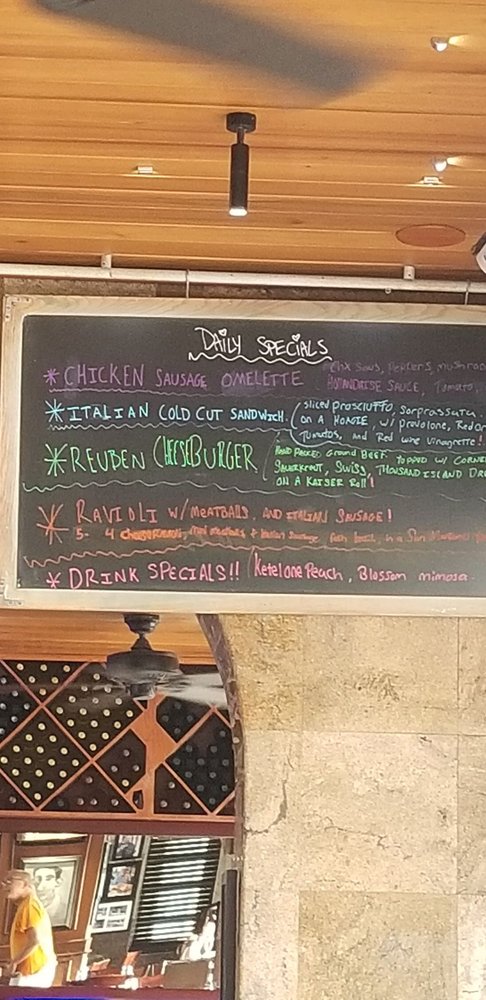 DAILY SPECIALS
* CHICKEN SAUSAGE OMELETTE
Chx Saus, Peppers, mushroo
HOllANDAISE SAUCE, TOMATO,
* ITALIAN COLD CUT SANDWICH.
sliced prosciutto, sorprassata
ON A HOAGIE, w/ provolone, Red on
Tomatos, and Red wine vinagrette!
* REUBEN CHEESEBURGER
HAND PACKED Ground BEEF. TOPPED w/ CORNE
SAUERKRAUT, SWISS, THOUSAND ISLAND DR
ON A KAISER Roll!
* RAVIOLI w/ MEATBALLS, AND ITALIAN SAUSAGE!
5- 4 cheese ravioli, mini meatballs + Italian Sausage, fresh basil, in a San Marzano
* DRINK SPECIALS!! Ketel one Peach, Blossom mimosa